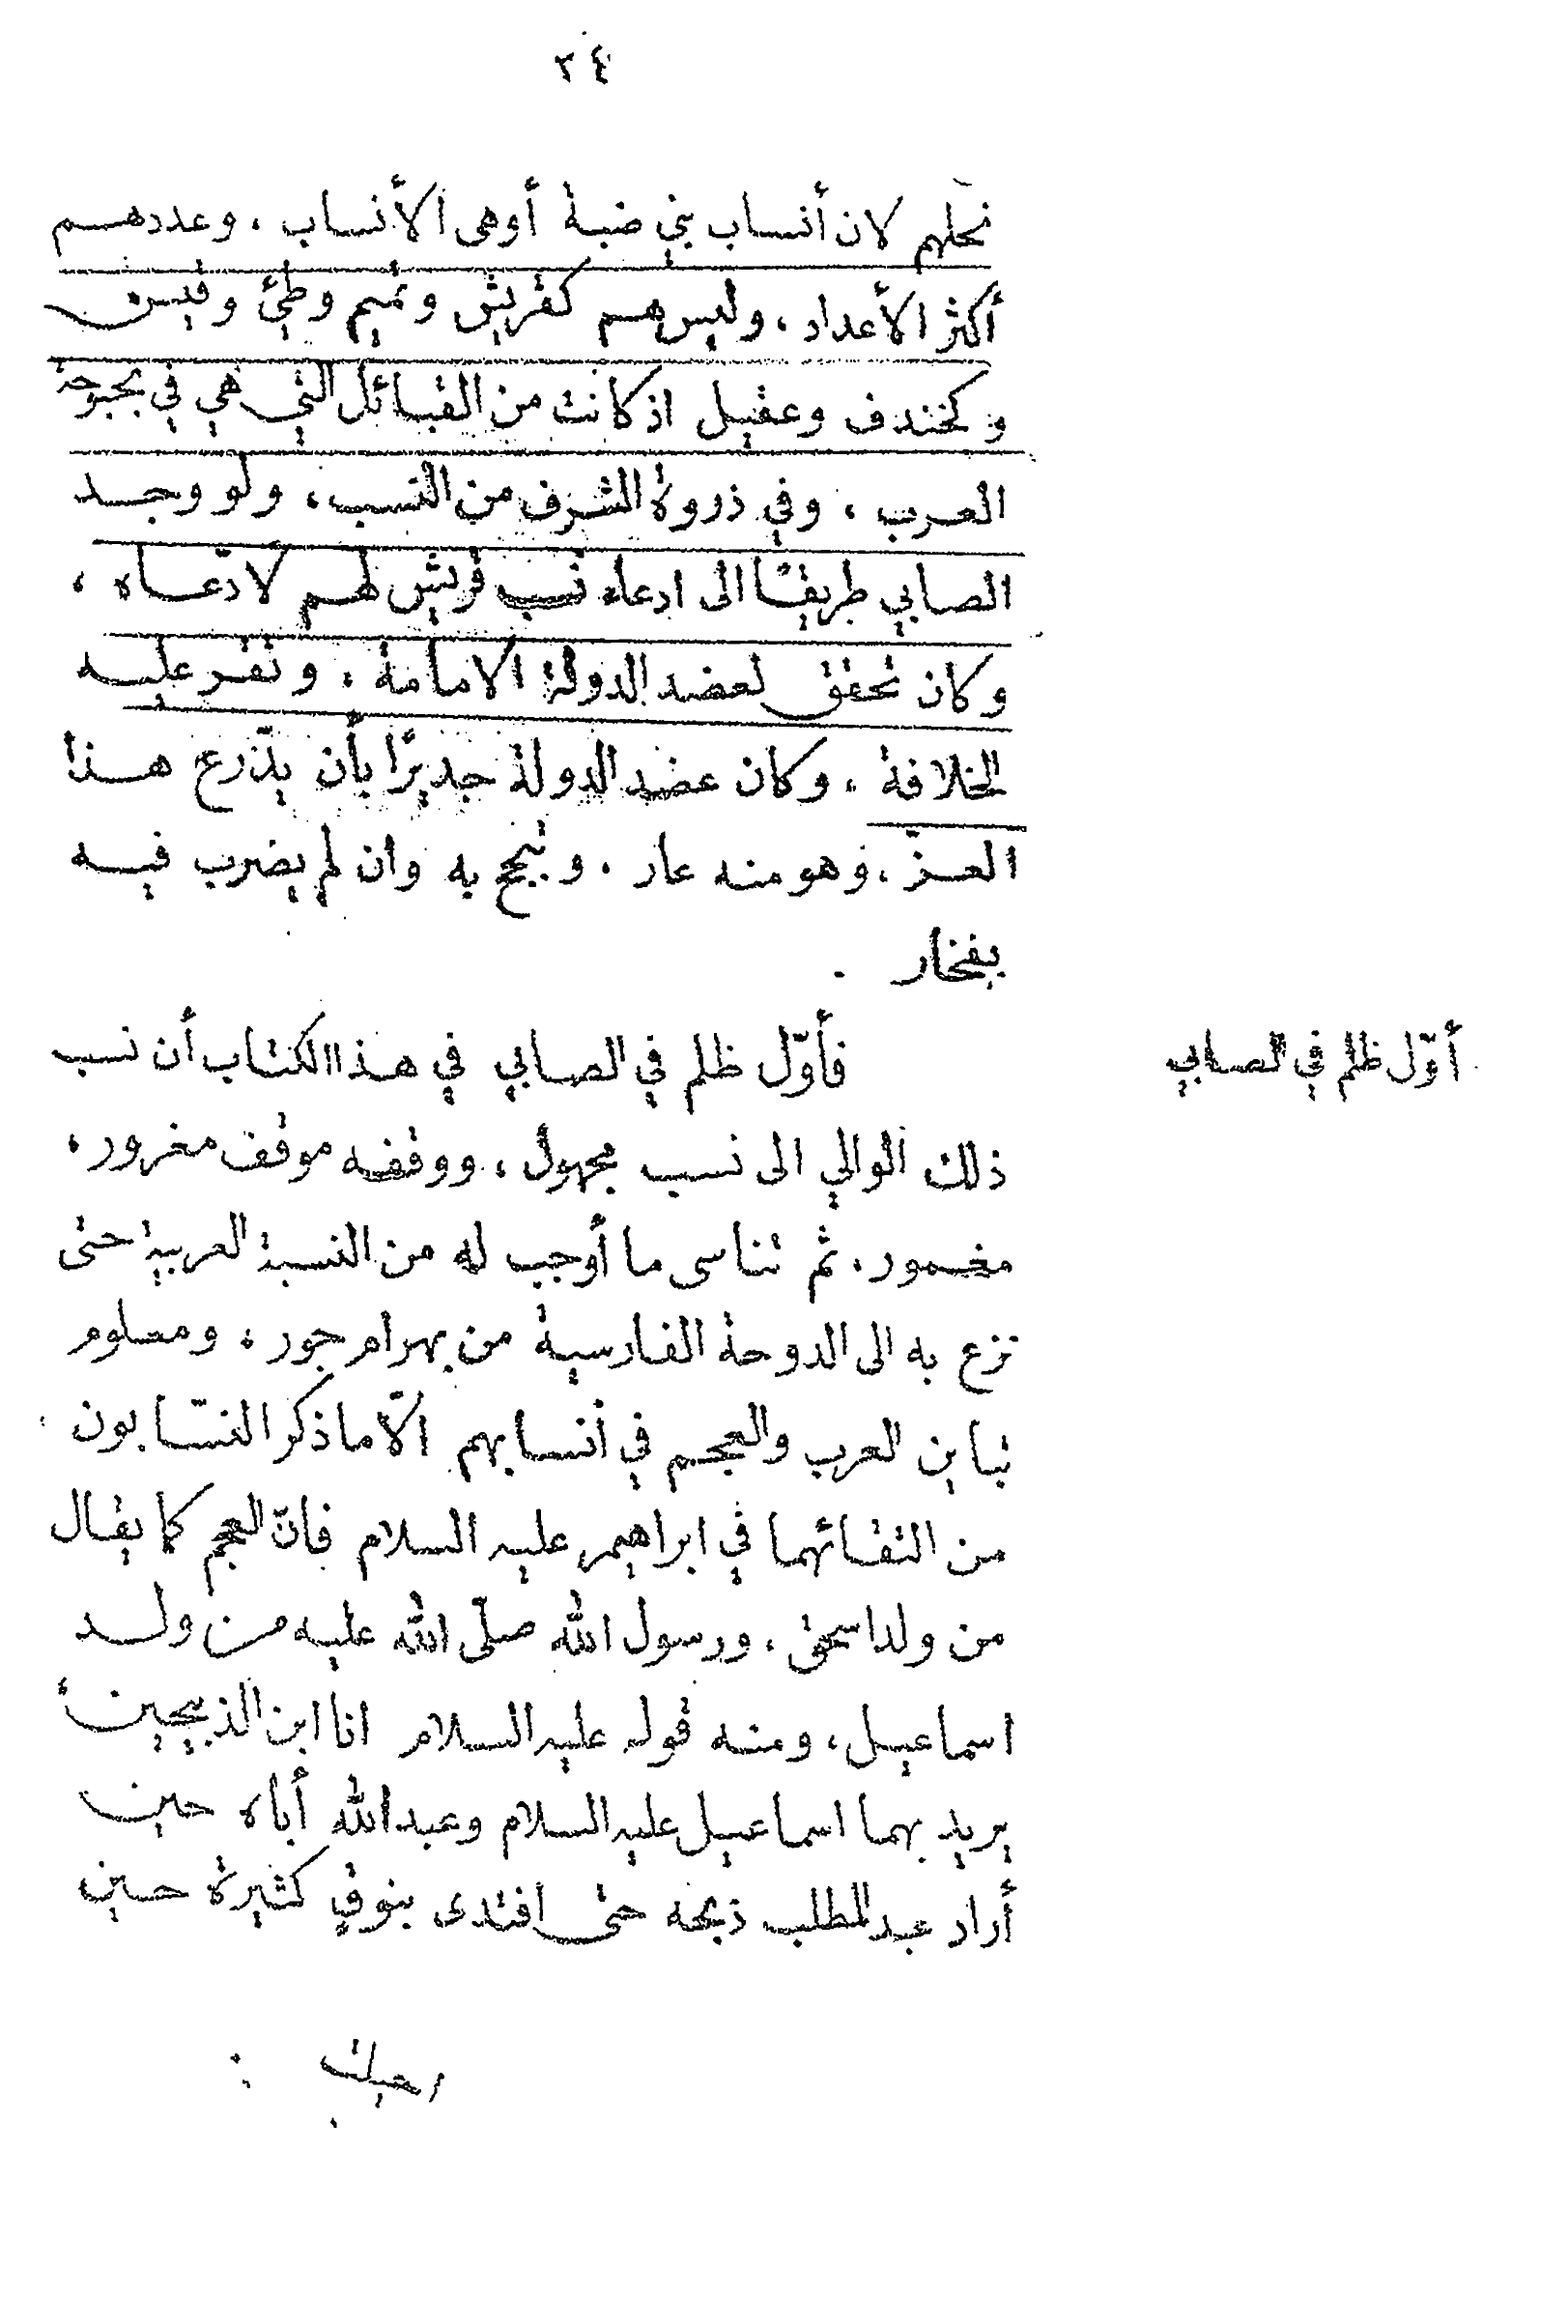 ٢٤
نحلهم لان أنساب بني ضبة أوهى الأنساب ، وعددهم
أكثر الأعداد ، وليس هم كقريش وتميم وطيئ وقيس
وكخندف وعقيل اذ كانت من القبائل التي هي في بحبوحة
العرب ، وفي ذروة الشرف من النسب ، ولو وجد
الصابي طريقًا الى ادعاء نسب قريش لهم لادّعاه ،
وكان تحقق لعضد الدولة الامامة ، وتقر عليه
الخلافة ، وكان عضد الدولة جديرًا بأن يدّرع هذا
العزّ ، وهو منه عار ، ويبجح به وان لم يضرب فيه
بفخار .
أوّل ظلم في الصابي
فأوّل ظلم في الصابي في هذا الكتاب أن نسب
ذلك الوالي الى نسب مجهول ، ووقفه موقف مغرور ،
مغمور ، ثم تناسى ما أوجب له من النسبة العربية حتى
نزع به الى الدوحة الفارسية من بهرام جور ، ومعلوم
تباين العرب والعجم في أنسابهم الاّ ما ذكر النسّابون
من التقائهما في ابراهيم عليه السلام فانّ العجم كما يقال
من ولد اسحق ، ورسول الله صلّى الله عليه من ولد
اسماعيل ، ومنه قوله عليه السلام انا ابن الذبيحين ،
يريد بهما اسماعيل عليه السلام وعبد الله أباه حين
أراد عبد المطلب ذبحه حتى افتدى بنوقٍ كثيرة حين